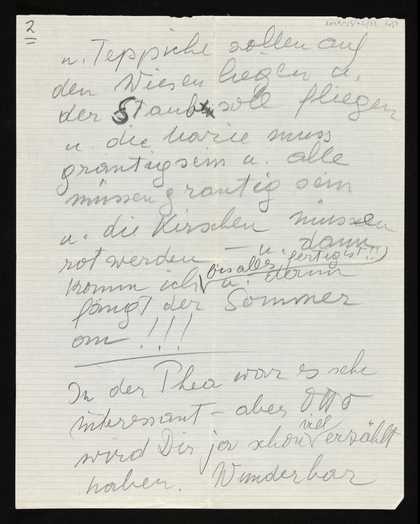 2
u. Teppiche sollen auf
den Wiesen liegen u.
der Staub soll fliegen
u. die Marie muss
grantig sein u. alle
müssen grantig sein
u. die Kirschen müssen
rot werden — u. dann
komm ich (bis alles fertig ist!!)
u. dann
fängt der Sommer
an!!!
In der Thea war es sehr
interessant – aber Otto
wird Dir ja schon viel erzählt
haben. Wunderbar